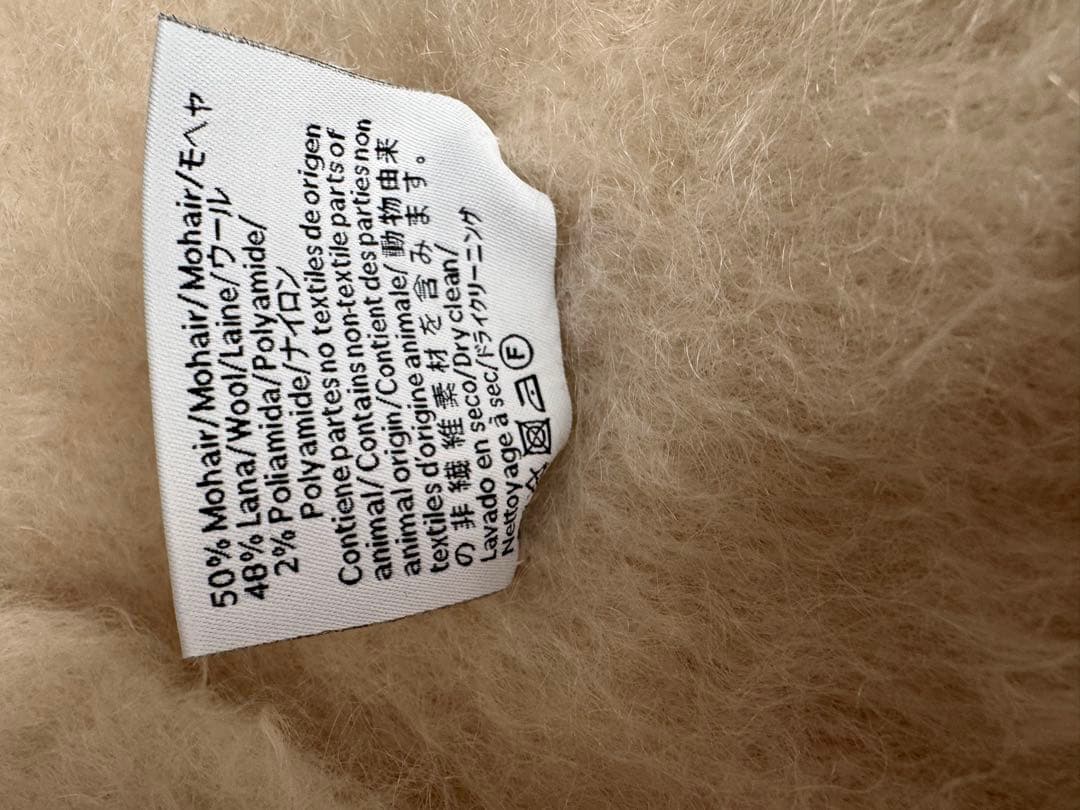 50% Mohair/Mohair/Mohair/モヘヤ
48% Lana/Wool/Laine/ウール
2% Poliamida/Polyamide/
Polyamide/ナイロン
Contiene partes no textiles de origen
animal/ Contains non-textile parts of
animal origin/Contient des parties non
textiles d'origine animale/ 動物由来
の非繊維素材を含みます。
Lavado en seco/Dry clean/
Nettoyage à sec/ドライクリーニング
F